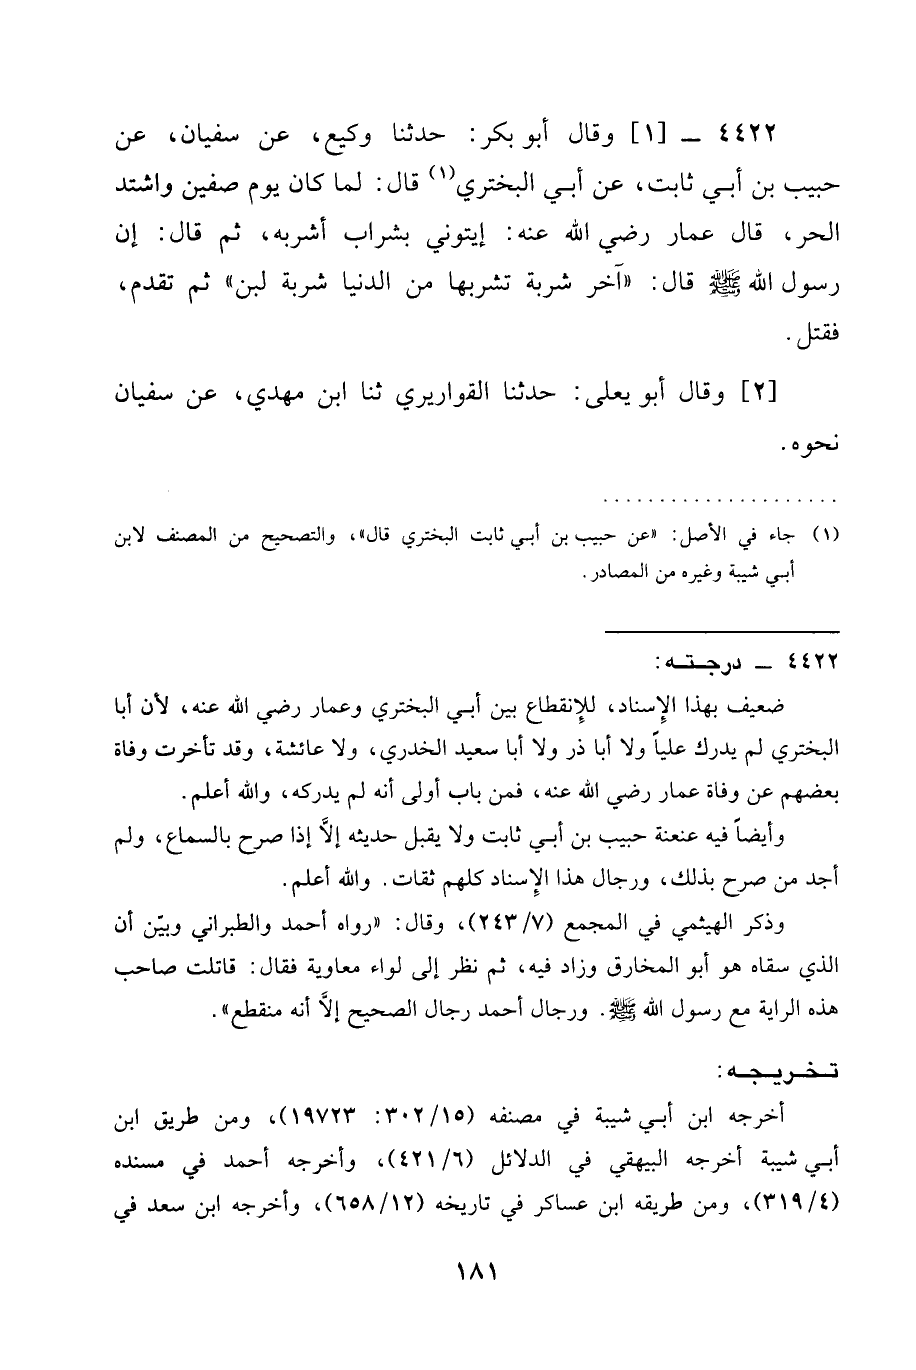 ٤٤٢٢ ــ [١] وقال أبو بكر: حدثنا وكيع، عن سفيان، عن
حبيب بن أبـي ثابت، عن أبـي البختري(١) قال: لما كان يوم صفين واشتد
الحر، قال عمار رضي الله عنه: إيتوني بشراب أشربه، ثم قال: إن
رسول الله ﷺ قال: «آخر شربة تشربها من الدنيا شربة لبن» ثم تقدم،
فقتل.
[٢] وقال أبو يعلى: حدثنا القواريري ثنا ابن مهدي، عن سفيان
نحوه.
. . . . . . . . . . . . . . . . . . . . .
(١) جاء في الأصل: «عن حبيب بن أبـي ثابت البختري قال»، والتصحيح من المصنف لابن
أبـي شيبة وغيره من المصادر.
٤٤٢٢ ــ درجـتـه:
ضعيف بهذا الإسناد، للإنقطاع بين أبـي البختري وعمار رضي الله عنه، لأن أبا
البختري لم يدرك علياً ولا أبا ذر ولا أبا سعيد الخدري، ولا عائشة، وقد تأخرت وفاة
بعضهم عن وفاة عمار رضي الله عنه، فمن باب أولى أنه لم يدركه، والله أعلم.
وأيضاً فيه عنعنة حبيب بن أبـي ثابت ولا يقبل حديثه إلاَّ إذا صرح بالسماع، ولم
أجد من صرح بذلك، ورجال هذا الإسناد كلهم ثقات. والله أعلم.
وذكر الهيثمي في المجمع (٢٤٣/٧)، وقال: «رواه أحمد والطبراني وبيّن أن
الذي سقاه هو أبو المخارق وزاد فيه، ثم نظر إلى لواء معاوية فقال: قاتلت صاحب
هذه الراية مع رسول الله ﷺ. ورجال أحمد رجال الصحيح إلاَّ أنه منقطع».
تـخـريـجـه:
أخرجه ابن أبـي شيبة في مصنفه (٣٠٢/١٥: ١٩٧٢٣)، ومن طريق ابن
أبـي شيبة أخرجه البيهقي في الدلائل (٤٢١/٦)، وأخرجه أحمد في مسنده
(٣١٩/٤)، ومن طريقه ابن عساكر في تاريخه (٦٥٨/١٢)، وأخرجه ابن سعد في
١٨١